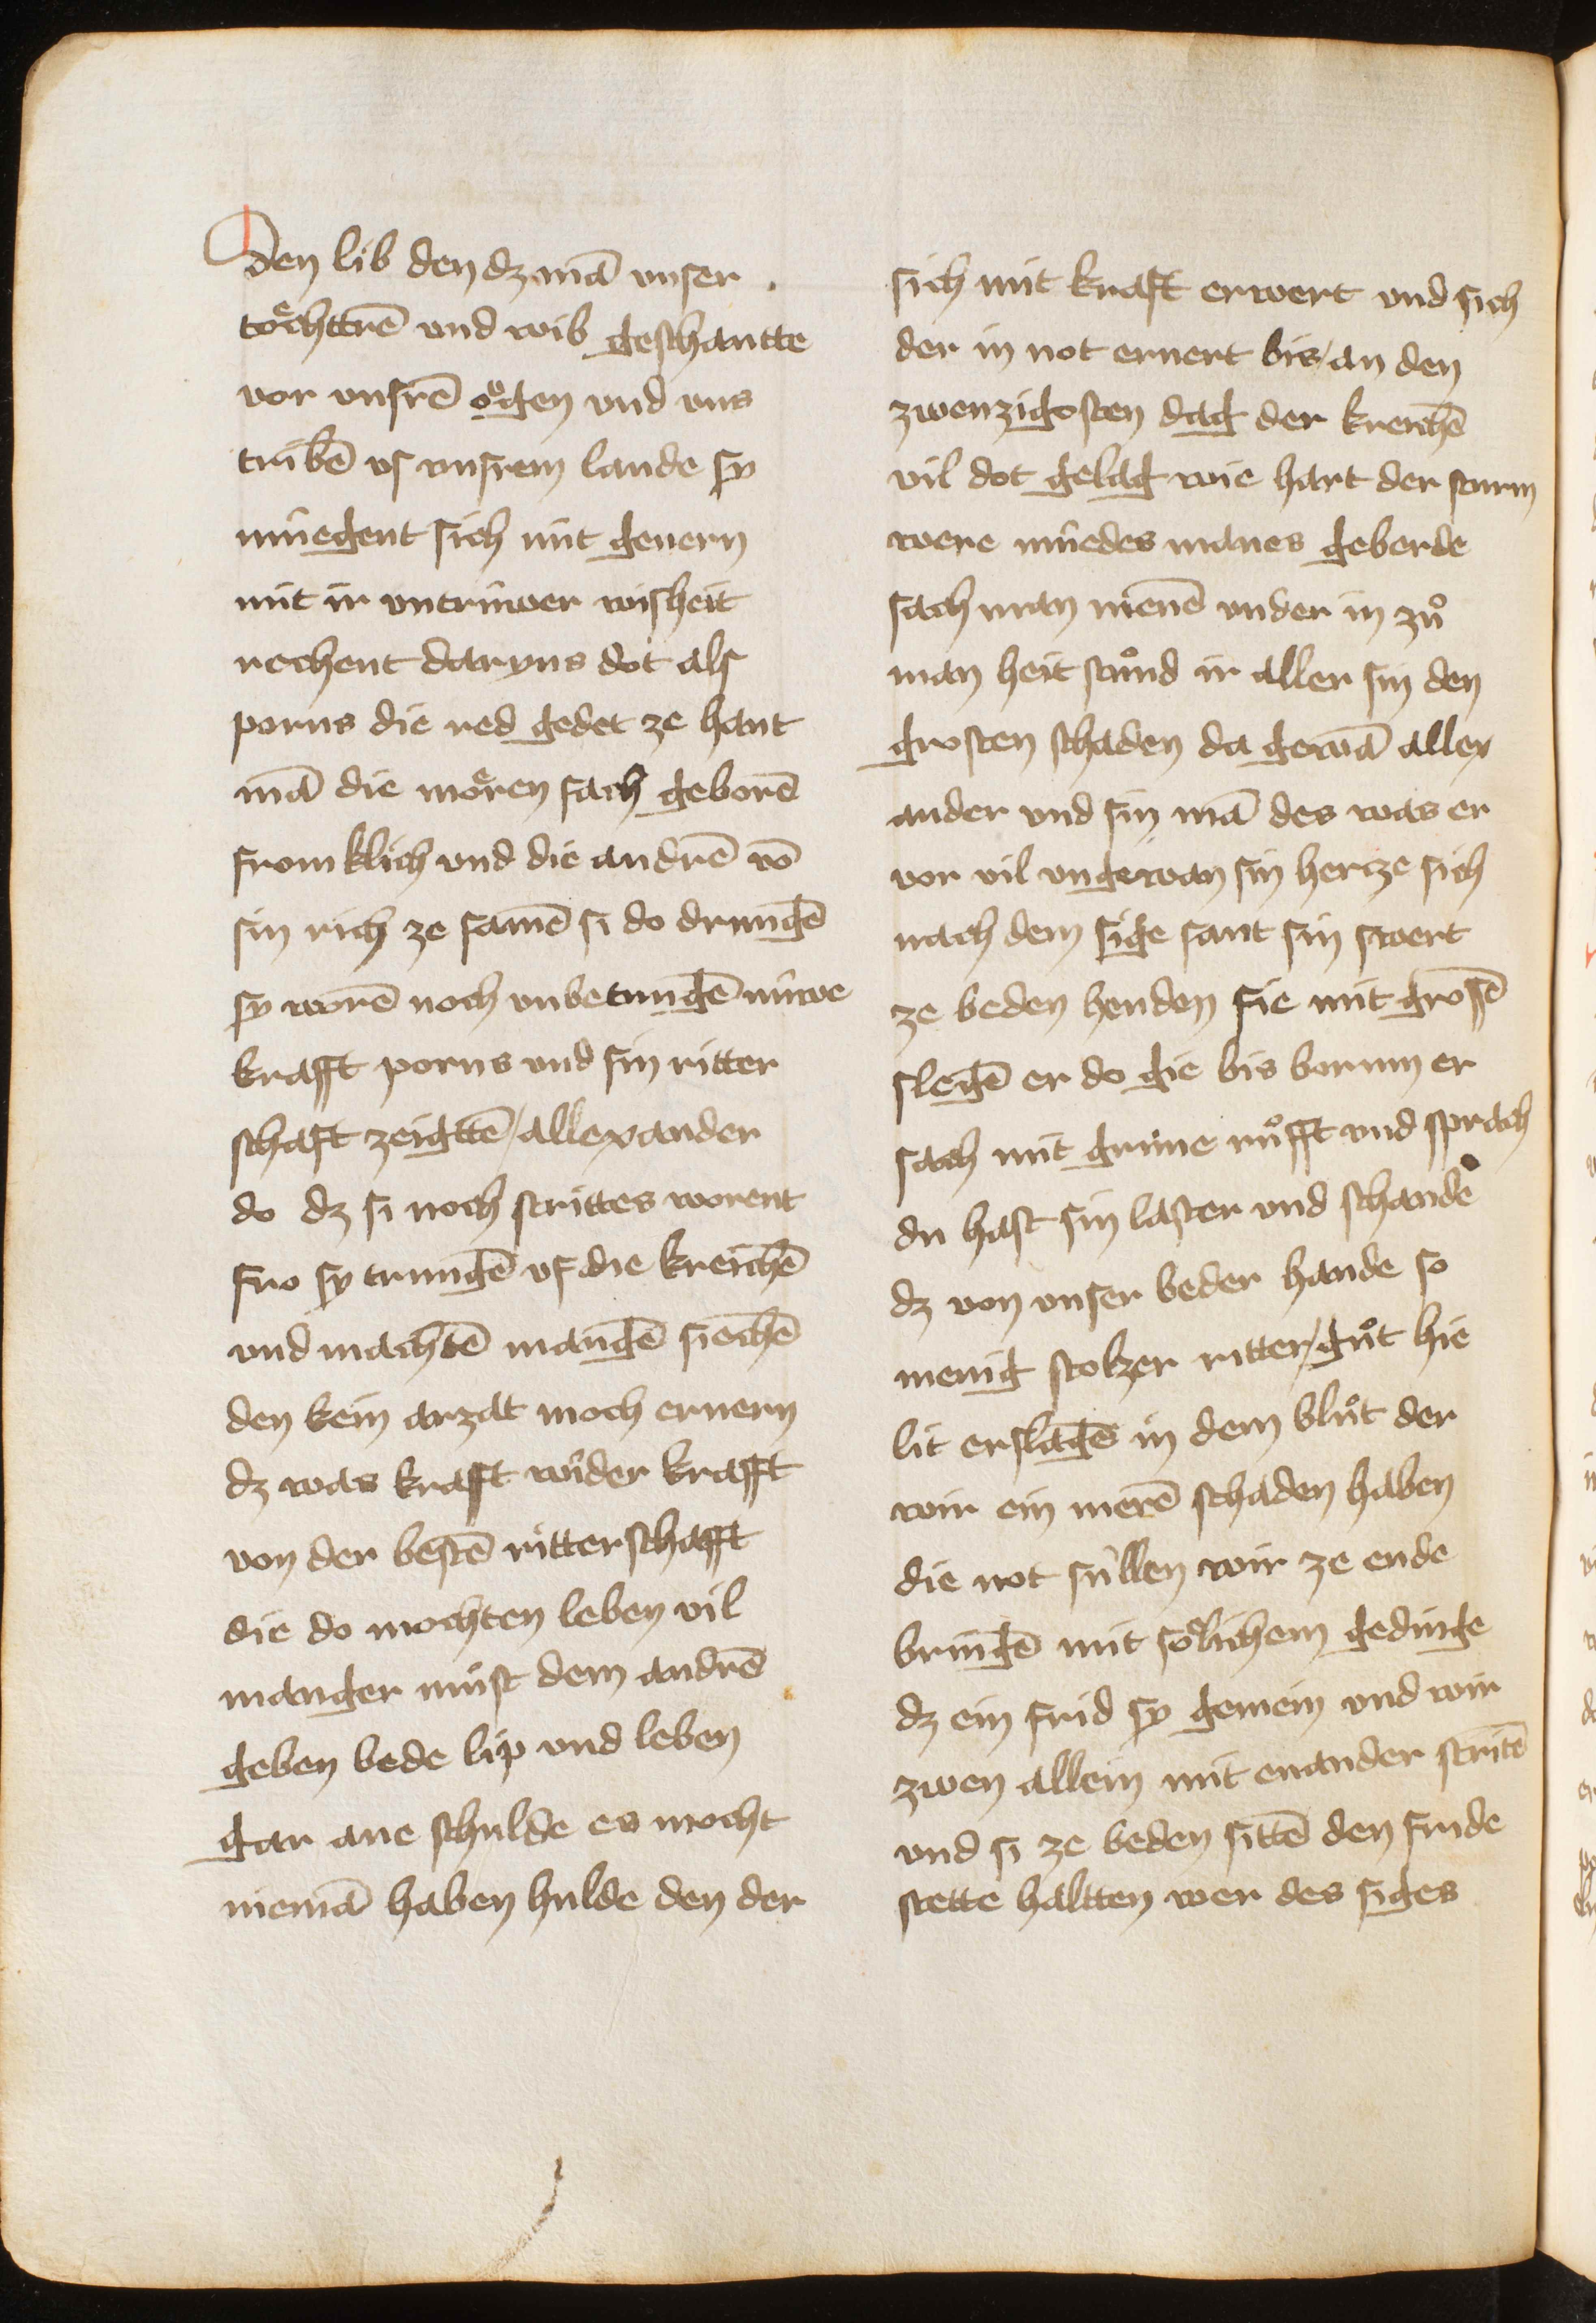 Den lib den dz mā vnser
toͤchttrē vnd wib geschantte
vor vnsrē oͮgen vnd vns
tribē vs vnsrem lande sy
mùegent sich mit geuern
mit ir vntrùwer wisheit
rechent daryns dot als
porus die red gedet ze hant
mā die moͤren sach geborē
fromklich vnd die andrē vō
sin rich ze samē si do drungē
sy worē noch vnbetungē nùwe
krafft porus vnd sin ritter
schaft zeigttē / allexander
do dz si noch strittes worent
fro sy trungē vf die kreichē
vnd machtē mangē siechē
den kein arzat moch ernern
dz was krafft wider krafft
von der bestē ritterschafft
die do mochten leben vil
manger muͦst dem andrē
geben bede lip vnd leben
gar ane schulde es mocht
niemā haben hulde den der
sich mit kraft erwert vnd sich
der in not ernert bis / an den
zwenzigosten dag der kreichē
vil dot gelag wie hart der sturm
were mùedes manes geberde
sach man nienē vnder in zuͦ
man heit stuͦnd ir aller sin den
grosten schaden da gewā allex
ander vnd sin mā des was er
vor vil vngewan sin hercze sich
nach dem sige sant sin swert
ze beden henden fie mit grossē
slegē er do gie bis borum er
sach mit grime ruͦfft vnd sprach
du hast sin laster vnd schande
dz von vnser beder hande so
menig stolzer ritter / guͦt hie
lit erslagē in dem bluͦt der
wir ein merē schaden haben
die not sùllen wir ze ende
bringē mit soͤlichem gedinge
dz ein frid sy gemein vnd wir
zwen allein mit enander stritē
vnd si ze beden sittē den fride
stette haltten wer des siges